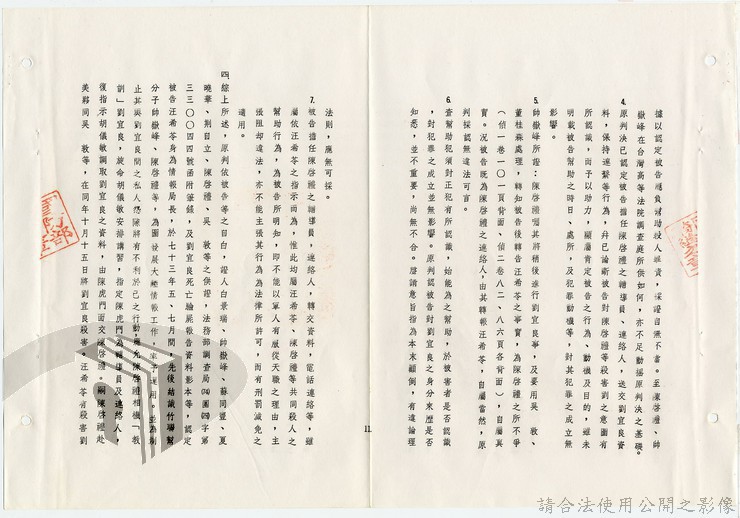 據以認定被告應負幫助殺人罪責，採證自無不當。至陳啓禮、帥
嶽峰在台灣高等法院調查庭所供如何，亦不足動搖原判決之基礎。
4.原判決已認定被告擔任陳啓禮之輔導員、連絡人，送交劉宜良資
料，保持連繫等行為，幷已論斷被告對陳啓禮等殺害劉之意圖有
所認識，而予以助力，顯屬肯定被告之行為、動機及目的，雖未
明載被告幫助之時日、處所，及犯罪動機等，對其犯罪之成立無
影響。
5.帥嶽峰所證：陳啓禮囑其將稍後進行劉宜良事，及要用吳　敦、
董桂森處理，轉知被告後轉告汪希苓之事實，為偵審之所不爭
（偵一卷一〇一頁背面、偵二卷八二、八六頁各背面），自屬真
實。況被告既為陳啓禮之連絡人，由其轉報汪希苓，自屬當然，原
判採認無違法可言。
6.查幫助犯須對正犯有所認識，始能為之幫助，於被害者是否認識
，對犯罪之成立並無影響。原判認被告對劉宜良之身分來歷是否
知悉，並不重要，尚無不合。聲請意旨指為本末顛倒，有違論理
11.
法則，應無可採。
7.被告擔任陳啓禮之輔導員，連絡人，轉交資料，電話連絡等，雖
屬依汪希苓之指示而為，惟此均屬汪希苓、陳啓禮等共同殺人之
幫助行為，為被告所明知，即不能以軍人有服從天職之理由，主
張阻却違法，亦不能主張其行為為法律所許可，而有刑罰減免之
適用。
四、綜上所述，原判依被告等之自白，證人白景瑞、帥嶽峰、蘇同豐、夏
曉華、荆自立、陳啓禮、吳　敦等之供證，法務部調查局
三三〇〇四四號函附筆錄，及劉宜良死亡驗屍報告資料影本等，認定
被告汪希苓身為情報局長，於七十三年五、七月間，先後結識竹聯幫
分子帥嶽峰、陳啓禮等，為圖發展大陸情報工作，
止其與劉宜良間之私人
訓」劉宜良，旋命胡儀敏安排講習，指定陳虎門為輔導員及連絡人，
復指示胡儀敏調取劉宜良之資料，由陳虎門面交陳啓禮。嗣陳啓禮赴
美夥同吳　敦等，在同年十月十五日將劉宜良殺害。汪希苓有殺害劉
請合法使用公開之影像